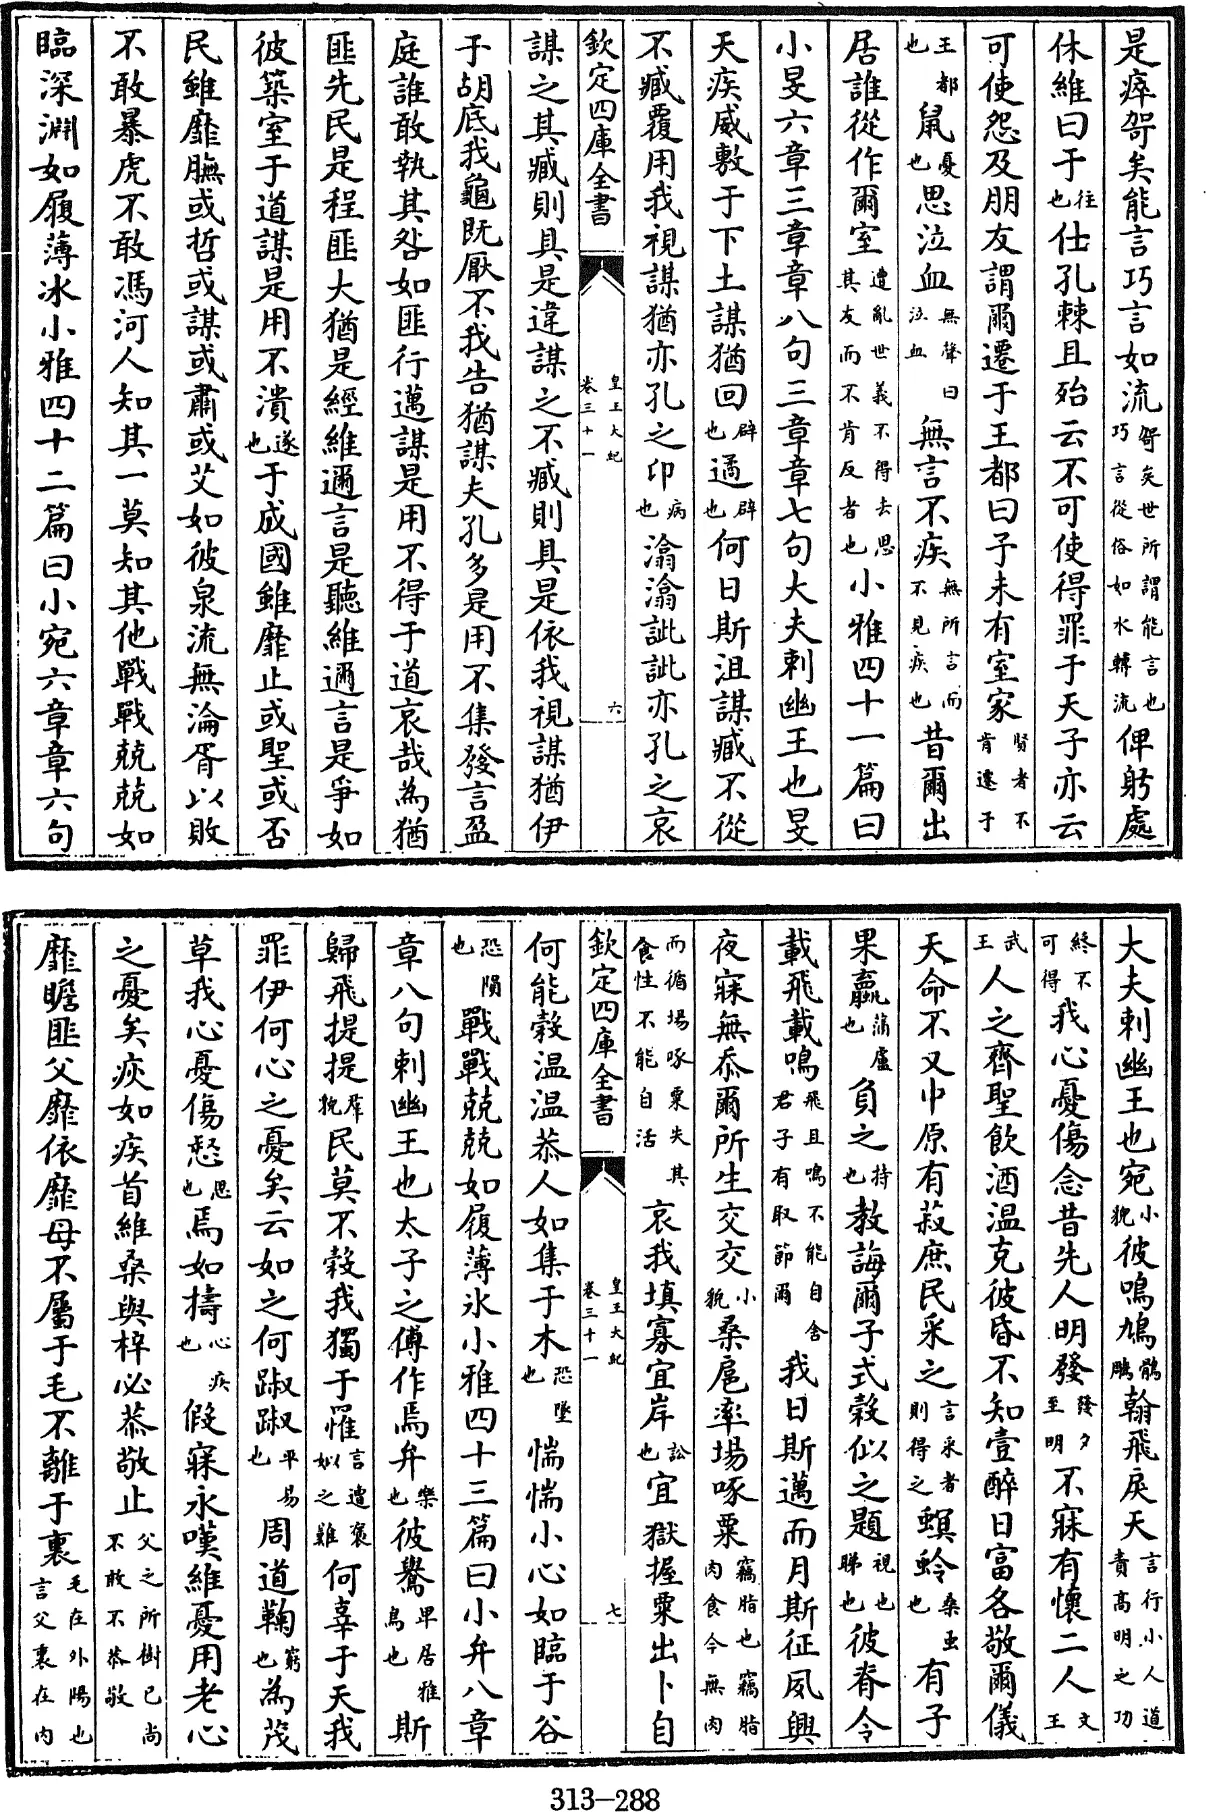 是瘁哿矣能言巧言如流哿矣世所謂能言也巧言從俗如水轉流俾躬處
休維曰于往也仕孔棘且殆云不可使得罪于天子亦云
可使怨及朋友謂爾遷于王都曰予未有室家賢者不肯遷于
王都也鼠憂也思泣血無聲曰泣血無言不疾無所言而不見疾也昔爾出
居誰從作爾室遭亂世義不得去思其友而不肯反者也小雅四十一篇曰
小旻六章三章章八句三章章七句大夫刺幽王也旻
天疾威敷于下土謀猶回辟也遹辟也何日斯沮謀臧不從
不臧覆用我視謀猶亦孔之卭病也潝潝訿訿亦孔之哀
欽定四庫全書 皇王大紀卷三十一 六
謀之其臧則具是違謀之不臧則具是依我視謀猶伊
于胡底我龜既厭不我告猶謀夫孔多是用不集發言盈
庭誰敢執其咎如匪行邁謀是用不得于道哀哉為猶
匪先民是程匪大猶是經維邇言是聽維邇言是爭如
彼築室于道謀是用不潰遂也于成國雖靡止或聖或否
民雖靡膴或哲或謀或肅或艾如彼泉流無淪胥以敗
不敢暴虎不敢馮河人知其一莫知其他戰戰兢兢如
臨深淵如履薄冰小雅四十二篇曰小宛六章章六句
大夫刺幽王也宛小貌彼鳴鳩鶻鵰翰飛戾天言行小人道責高明之功
終不可得我心憂傷念昔先人明發發夕至明不寐有懷二人文王
武王人之齊聖飲酒温克彼昏不知壹醉日富各敬爾儀
天命不又中原有菽庶民采之言采者則得之螟蛉桑虫也有子
果蠃蒲盧也負之持也教誨爾子式穀似之題視也睇也彼脊令
載飛載鳴飛且鳴不能自舍君子有取節爾我日斯邁而月斯征夙興
夜寐無忝爾所生交交小貌桑扈率場啄粟竊脂也竊脂肉食今無肉
而循場啄粟失其食性不能自活哀我填寡宜岸訟也宜獄握粟出卜自
欽定四庫全書 皇王大紀卷三十一 七
何能穀温温恭人如集于木恐墜也惴惴小心如臨于谷
恐隕也戰戰兢兢如履薄氷小雅四十三篇曰小弁八章
章八句刺幽王也太子之傅作焉弁樂也彼鸒卑居雅鳥也斯
歸飛提提羣貌民莫不穀我獨于罹言遭褒姒之難何辜于天我
罪伊何心之憂矣云如之何踧踧平易也周道鞫窮也為茂
草我心憂傷惄思也焉如擣心疾也假寐永嘆維憂用老心
之憂矣疢如疾首維桑與梓必恭敬止父之所樹己尚不敢不恭敬
靡瞻匪父靡依靡母不屬于毛不離于裏毛在外陽也言父裏在内
313-288